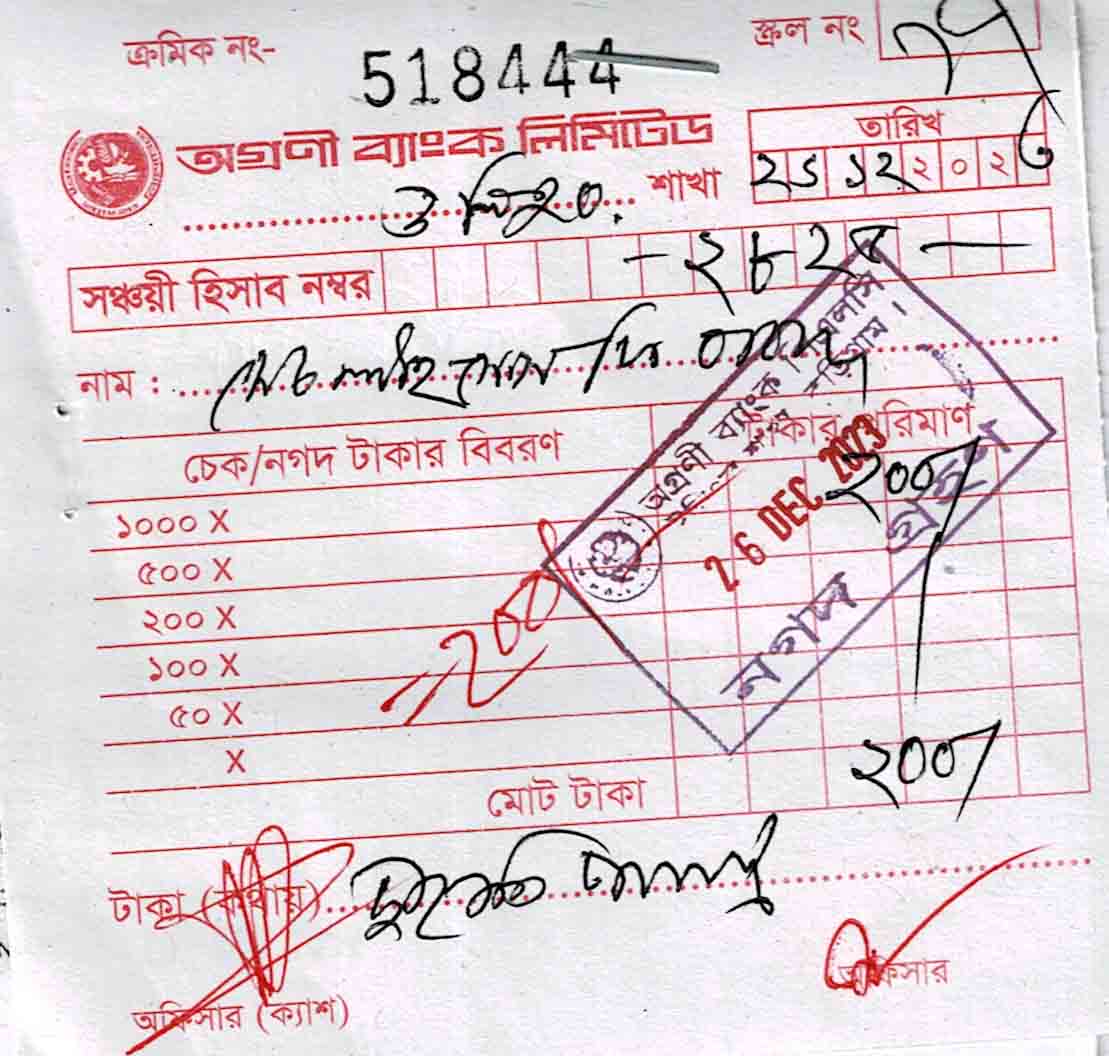 ক্রমিক নং-
518444
স্ক্রল নং
অগ্রণী ব্যাংক লিমিটেড
তারিখ
শাখা
২৬ ১২ ২০২৩
সঞ্চয়ী হিসাব নম্বর
নাম :
চেক/নগদ টাকার বিবরণ
টাকার পরিমাণ
২০০/
১০০০ X
৫০০ X
২০০ X
১০০ X
৫০ X
X
= 200/
অগ্রণী ব্যাংক
26 DEC 2023
নগদ গ্রহণ
মোট টাকা
২০০/
টাকা (কথায়) দুইশত টাকা
অফিসার (ক্যাশ)
অফিসার